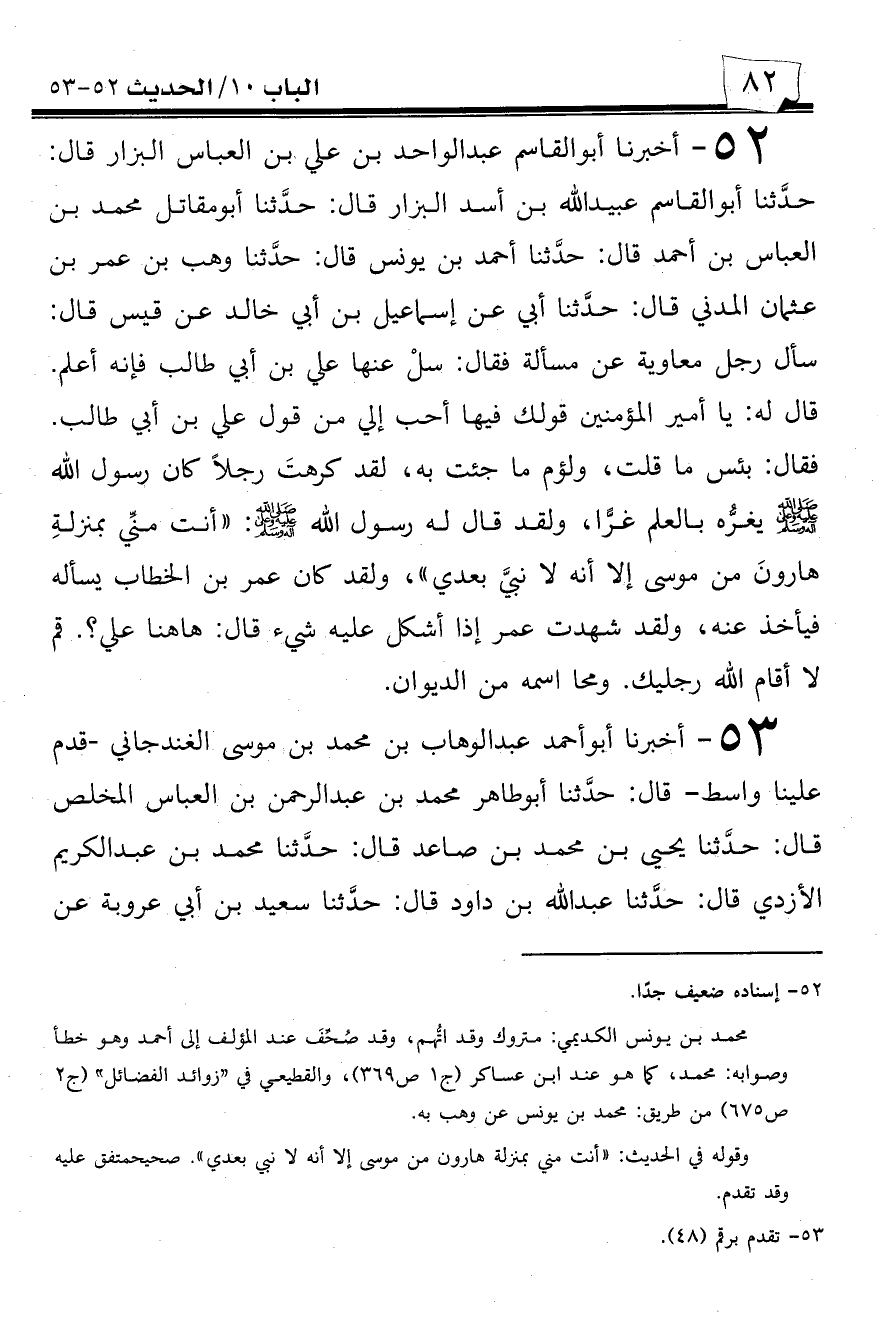 ٨٢
الباب ١٠/الحديث ٥٢-٥٣
٥٢- أخبرنا أبوالقاسم عبدالواحد بن علي بن العباس البزار قال:
حدَّثنا أبوالقاسم عبيدالله بن أسد البزار قال: حدَّثنا أبومقاتل محمد بن
العباس بن أحمد قال: حدَّثنا أحمد بن يونس قال: حدَّثنا وهب بن عمر بن
عثمان المدني قال: حدَّثنا أبي عن إسماعيل بن أبي خالد عن قيس قال:
سأل رجل معاوية عن مسألة فقال: سلْ عنها علي بن أبي طالب فإنه أعلم.
قال له: يا أمير المؤمنين قولك فيها أحب إلي من قول علي بن أبي طالب.
فقال: بئس ما قلت، ولؤم ما جئت به، لقد كرهتَ رجلاً كان رسول الله
ﷺ يغرُّه بالعلم غرًّا، ولقد قال له رسول الله ﷺ: «أنت منِّي بمنزلةِ
هارونَ من موسى إلا أنه لا نبيَّ بعدي»، ولقد كان عمر بن الخطاب يسأله
فيأخذ عنه، ولقد شهدت عمر إذا أشكل عليه شيء قال: هاهنا علي؟. قم
لا أقام الله رجليك. ومحا اسمه من الديوان.
٥٣- أخبرنا أبوأحمد عبدالوهاب بن محمد بن موسى الغندجاني -قدم
علينا واسط- قال: حدَّثنا أبوطاهر محمد بن عبدالرحمن بن العباس المخلص
قال: حدَّثنا يحيى بن محمد بن صاعد قال: حدَّثنا محمد بن عبدالكريم
الأزدي قال: حدَّثنا عبدالله بن داود قال: حدَّثنا سعيد بن أبي عروبة عن
٥٢- إسناده ضعيف جدًا.
محمد بن يونس الكديمي: متروك وقد اتُّهم، وقد صُحِّفَ عند المؤلف إلى أحمد وهو خطأ
وصوابه: محمد، كما هو عند ابن عساكر (ج١ ص٣٦٩)، والقطيعي في "زوائد الفضائل" (ج٢
ص٦٧٥) من طريق: محمد بن يونس عن وهب به.
وقوله في الحديث: «أنت مني بمنزلة هارون من موسى إلا أنه لا نبي بعدي». صحيحمتفق عليه
وقد تقدم.
٥٣- تقدم برقم (٤٨).